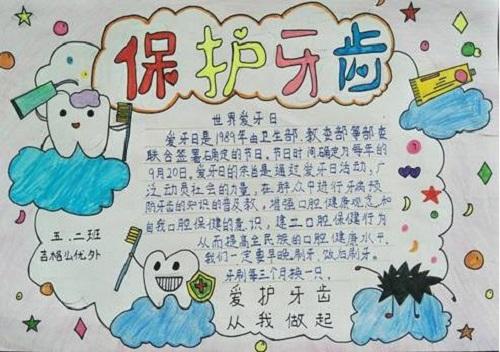 保护牙齿
世界爱牙日
爱牙日是1989年由卫生部、教委部等部委
联合签署确定的节日,节日时间确定为每年的
9月20日。爱牙日的宗旨是通过爱牙日活动,广
泛动员社会的力量,在群众中进行牙病预
防牙齿的知识的普及教,增强口腔健康观念和
自我口腔保健的意识,建立口腔保健行为
从而提高全民族的口腔健康水平。
我们一定要早晚刷牙,后刷牙。
牙刷每三个月换一只。
爱护牙齿
从我做起
五、二班